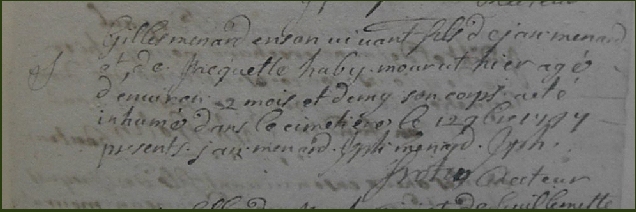 recteur
Gilles menard en son vivant fils de jan menard
et de jacquette haby mourut hier agé
d'environ 2 mois et demy son corps a eté
inhumé dans le cimetière le 12 9bre
presents jan menard
recteur
de Guillemette